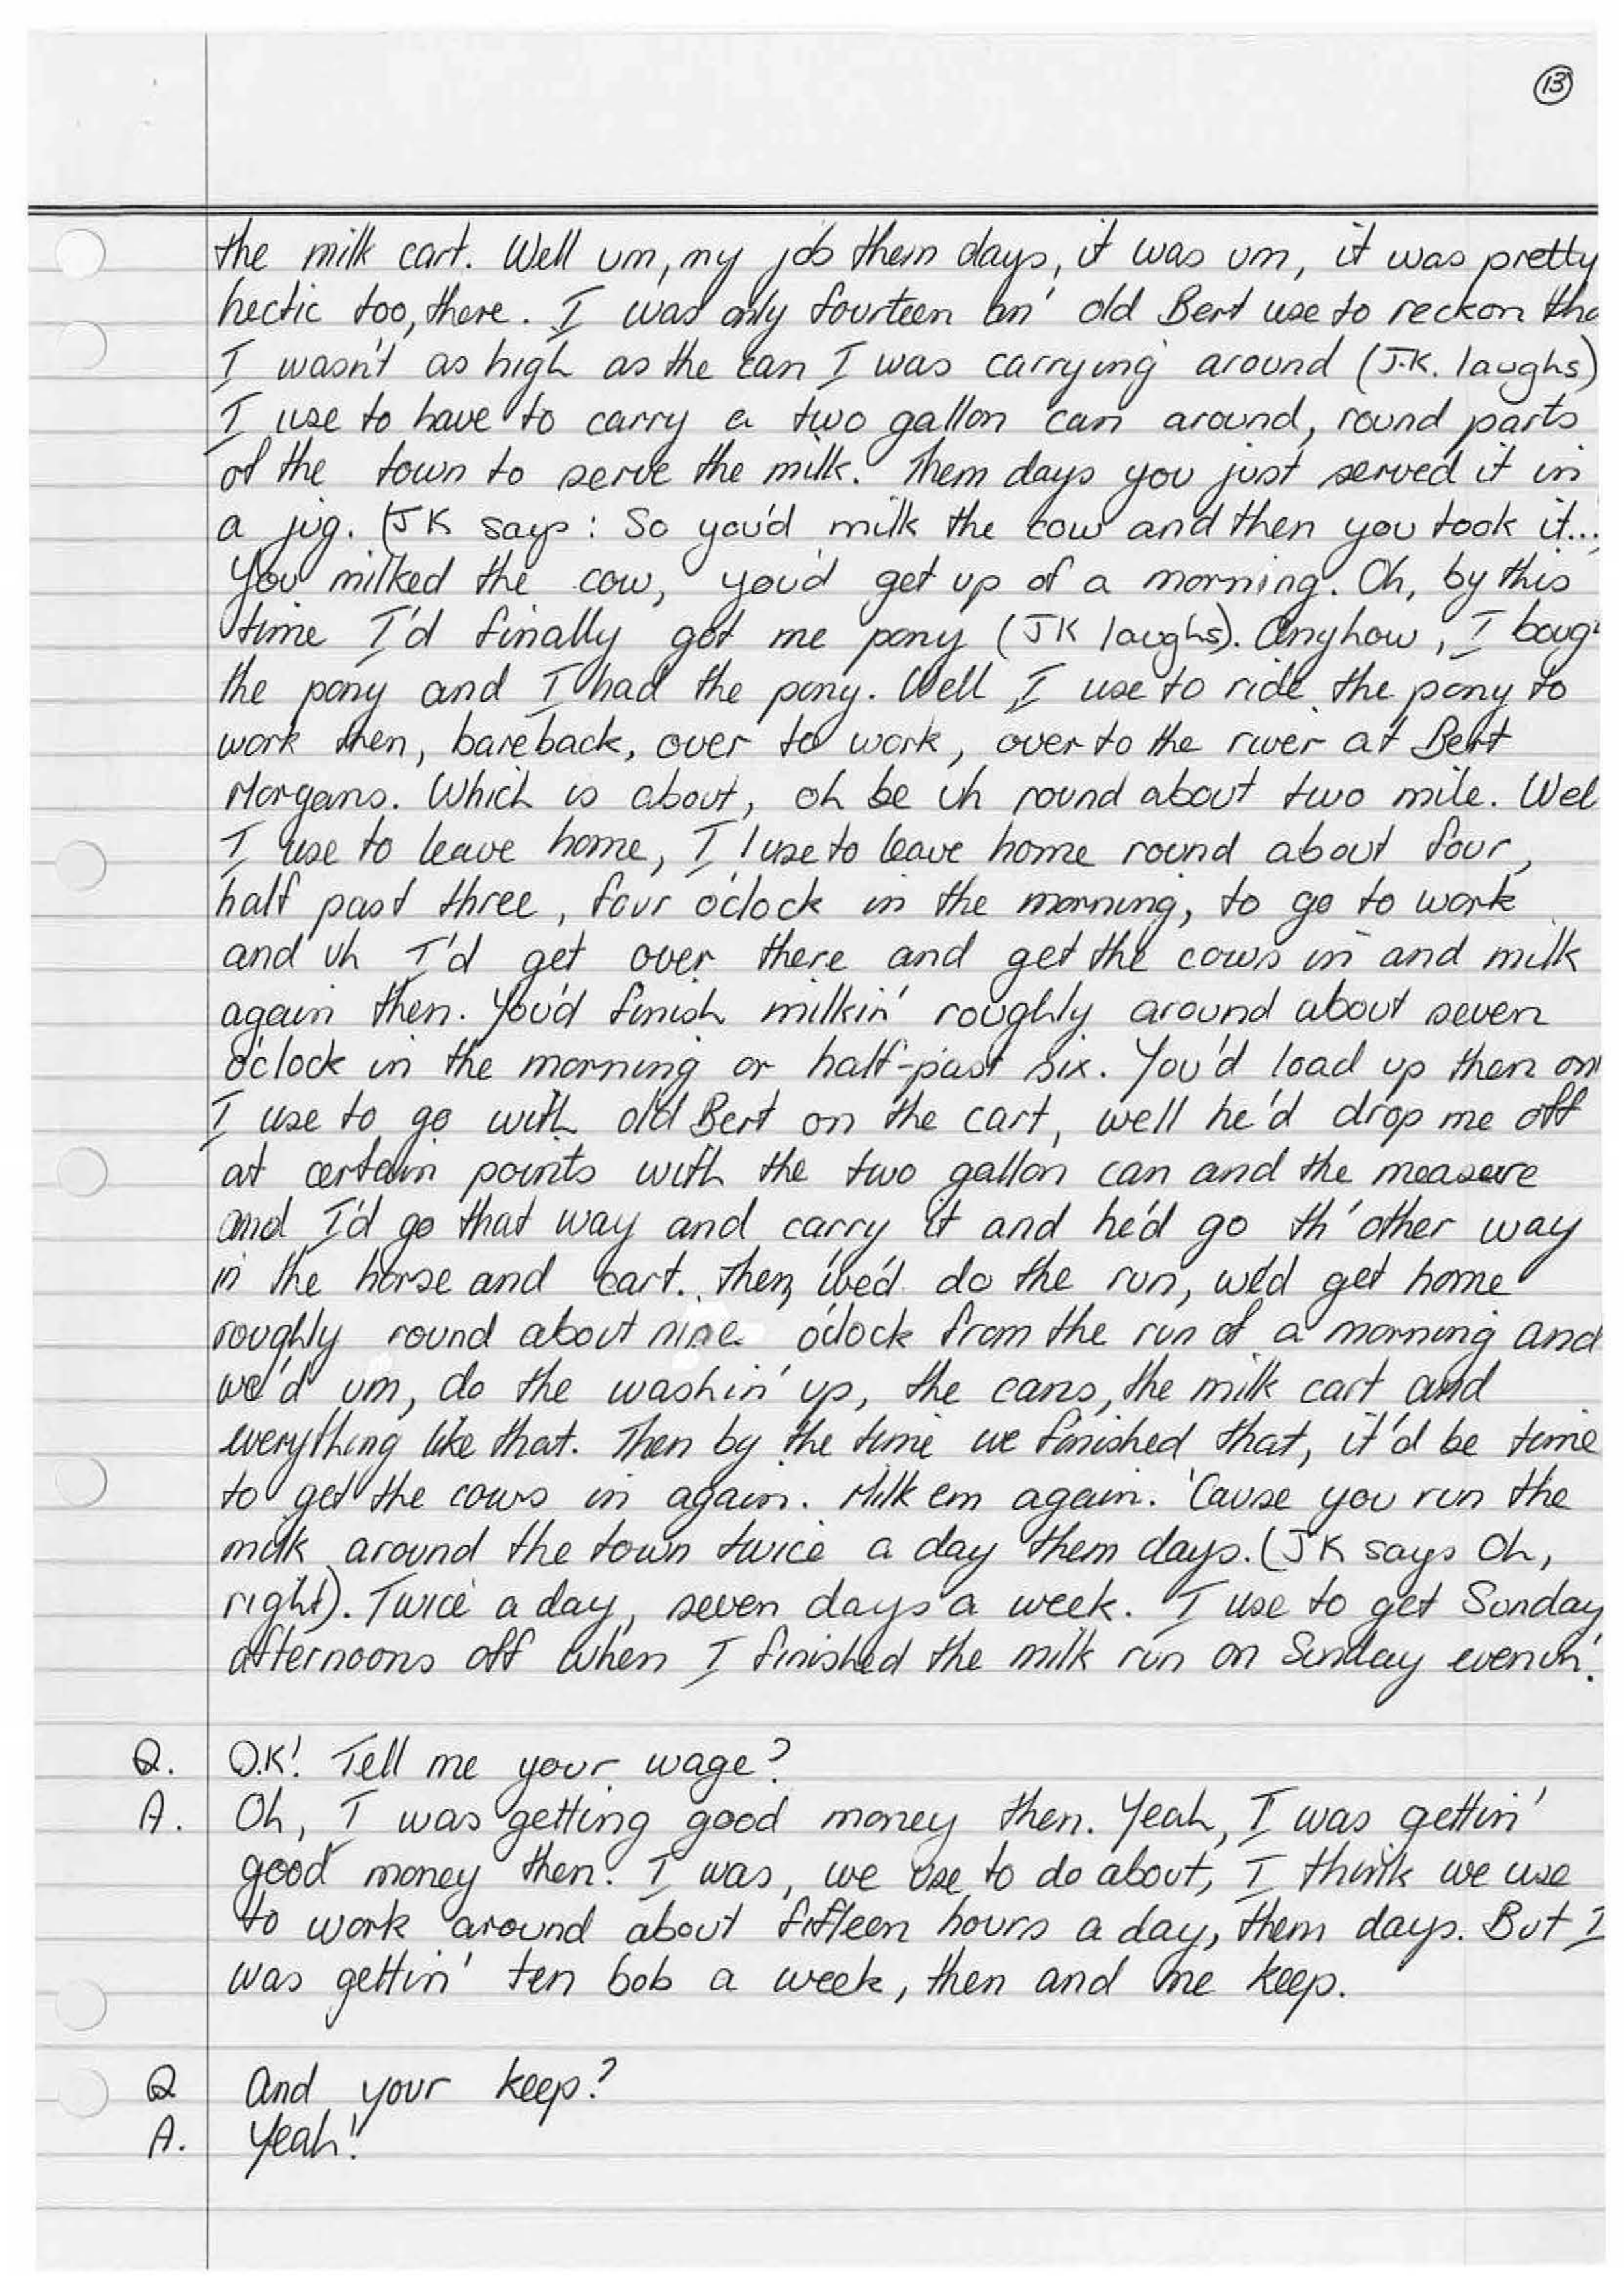 13
the milk cart. Well um, my job them days, it was um, it was pretty
hectic too, there. I was only fourteen an' old Bert use to reckon tha
I wasn't as high as the can I was carrying around (J.K. laughs)
I use to have to carry a two gallon can around, round parts
of the town to serve the milk. Them days you just served it in
a jug. (JK says: So you'd milk the cow and then you took it...
You milked the cow, you'd get up of a morning. Oh, by this
time I'd finally got me pony (JK laughs). Anyhow, I boug
the pony and I had the pony. Well I use to ride the pony to
work then, bareback, over to work, over to the river at Bert
Morgans. Which is about, oh be uh round about two mile. Wel
I use to leave home, I use to leave home round about four,
half past three, four o'clock in the morning, to go to work
and uh I'd get over there and get the cows in and milk
again then. You'd finish milkin' roughly around about seven
o'clock in the morning or half-past six. You'd load up then an
I use to go with old Bert on the cart, well he'd drop me off
at certain points with the two gallon can and the measure
and I'd go that way and carry it and he'd go th'other way
in the horse and cart. Then, we'd do the run, we'd get home
roughly round about nine o'clock from the run of a morning and
we'd um, do the washin' up, the cans, the milk cart and
everything like that. Then by the time we finished that, it'd be time
to get the cows in again. Milk em again. 'Cause you run the
milk around the town twice a day them days. (JK says Oh,
right). Twice a day, seven days a week. I use to get Sunday
afternoons off when I finished the milk run on Sunday evenin'.
Q. O.K! Tell me your wage?
A. Oh, I was getting good money then. Yeah, I was gettin'
good money then. I was, we use to do about, I think we use
to work around about fifteen hours a day, them days. But I
was gettin' ten bob a week, then and me keep.
Q And your keep?
A. Yeah!